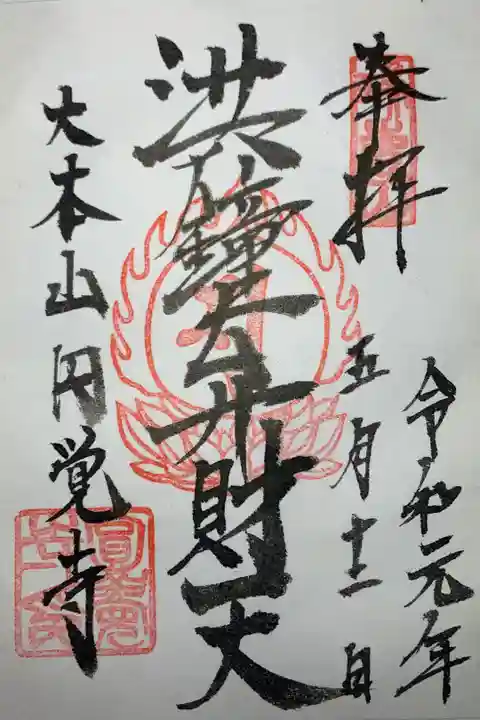 奉拝
令和元年
五月十二日
洪鐘大弁財天
大本山円覚寺